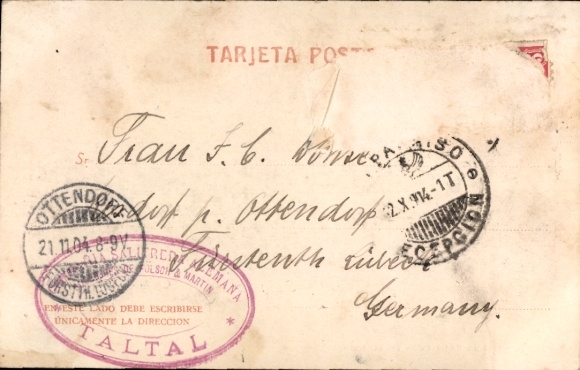 TARJETA POST
Frau J. C.
dorf p. Ottendorf
Fürstenth. Lübeck
Germany.
OTTENDORF
21.11.04. 8-9V
FÜRSTTH. LÜBECK
RAISO
2.X.904.-1T
CEPCION
CIA SALITRERA ALEMANA
FÖLSCH & MARTIN
EN ESTE LADO DEBE ESCRIBIRSE
ÚNICAMENTE LA DIRECCION
* TALTAL *